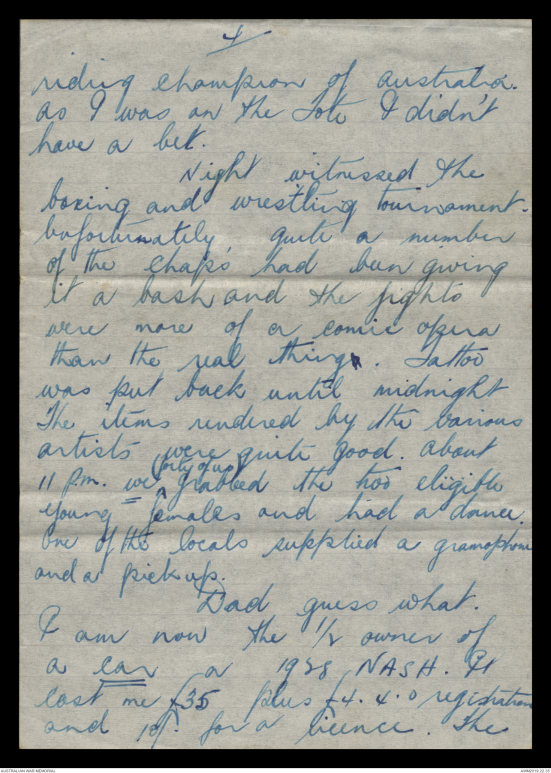 4
riding champion of Australia.
As I was on the Tote I didn't
have a bet.
Night witnessed the
boxing and wrestling tournament.
Unfortunately, quite a number
of the chaps had been giving
it a bash and the fights
were more of a comic opera
than the real thing. Tattoo
was put back until midnight
The items rendered by the various
artists were quite good. About
(forty of us)
11 P.m. we grabbed the two eligible
young females and had a dance.
One of the locals supplied a gramophone
and a pickup.
Dad guess what.
I am now the 1/2 owner of
a car a 1928 NASH. It
cost me £35 plus £4.4.0 registration
and 10/- for a licence. The
AUSTRALIAN WAR MEMORIAL